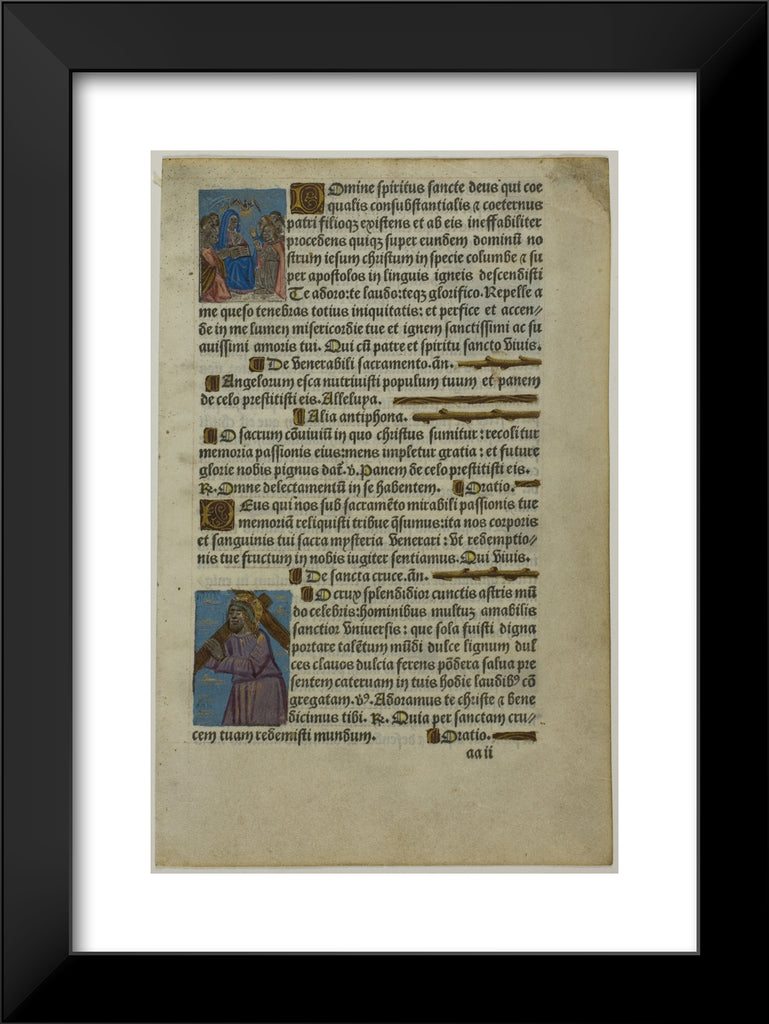 Domine spiritus sancte deus qui coe
qualis consubstantialis ⁊ coeternus
patri filioqꝫ existens et ab eis ineffabiliter
procedens quiqꝫ super eundem dominū no
strum iesum christum in specie columbe ⁊ su
per apostolos in linguis igneis descendisti
Te adoro: te laudo: teqꝫ glorifico. Repelle a
me queso tenebras totius iniquitatis: et perfice et accen⸗
de in me lumen misericordie tue et ignem sanctissimi ac su
auissimi amoris tui. Qui cū patre et spiritu sancto viuis.
De venerabili sacramento. añ.
Angelorum esca nutriuisti populum tuum et panem
de celo prestitisti eis. Alleluya.
Alia antiphona.
O sacrum cōuiuiū in quo christus sumitur: recolitur
memoria passionis eius: mens impletur gratia: et future
glorie nobis pignus dat̄. v. Panem de celo prestitisti eis.
℞. Omne delectamentū in se habentem. Oratio.
Deus qui nos sub sacramēto mirabili passionis tue
memoriā reliquisti tribue q̄sumus: ita nos corporis
et sanguinis tui sacra mysteria venerari: vt redemptio⸗
nis tue fructum in nobis iugiter sentiamus. Qui viuis.
De sancta cruce. añ.
O crux splendidior cunctis astris mū
do celebris: hominibus multuꝫ amabilis
sanctior vniuersis: que sola fuisti digna
portare talētum mūdi dulce lignum dul
ces clauos dulcia ferens pōdera salua pre
sentem cateruam in tuis hodie laudibꝰ cō
gregatam. vꝰ. Adoramus te christe ⁊ bene
dicimus tibi. ℞. Quia per sanctam cru⸗
cem tuam redemisti mundum. Oratio.
aa ii